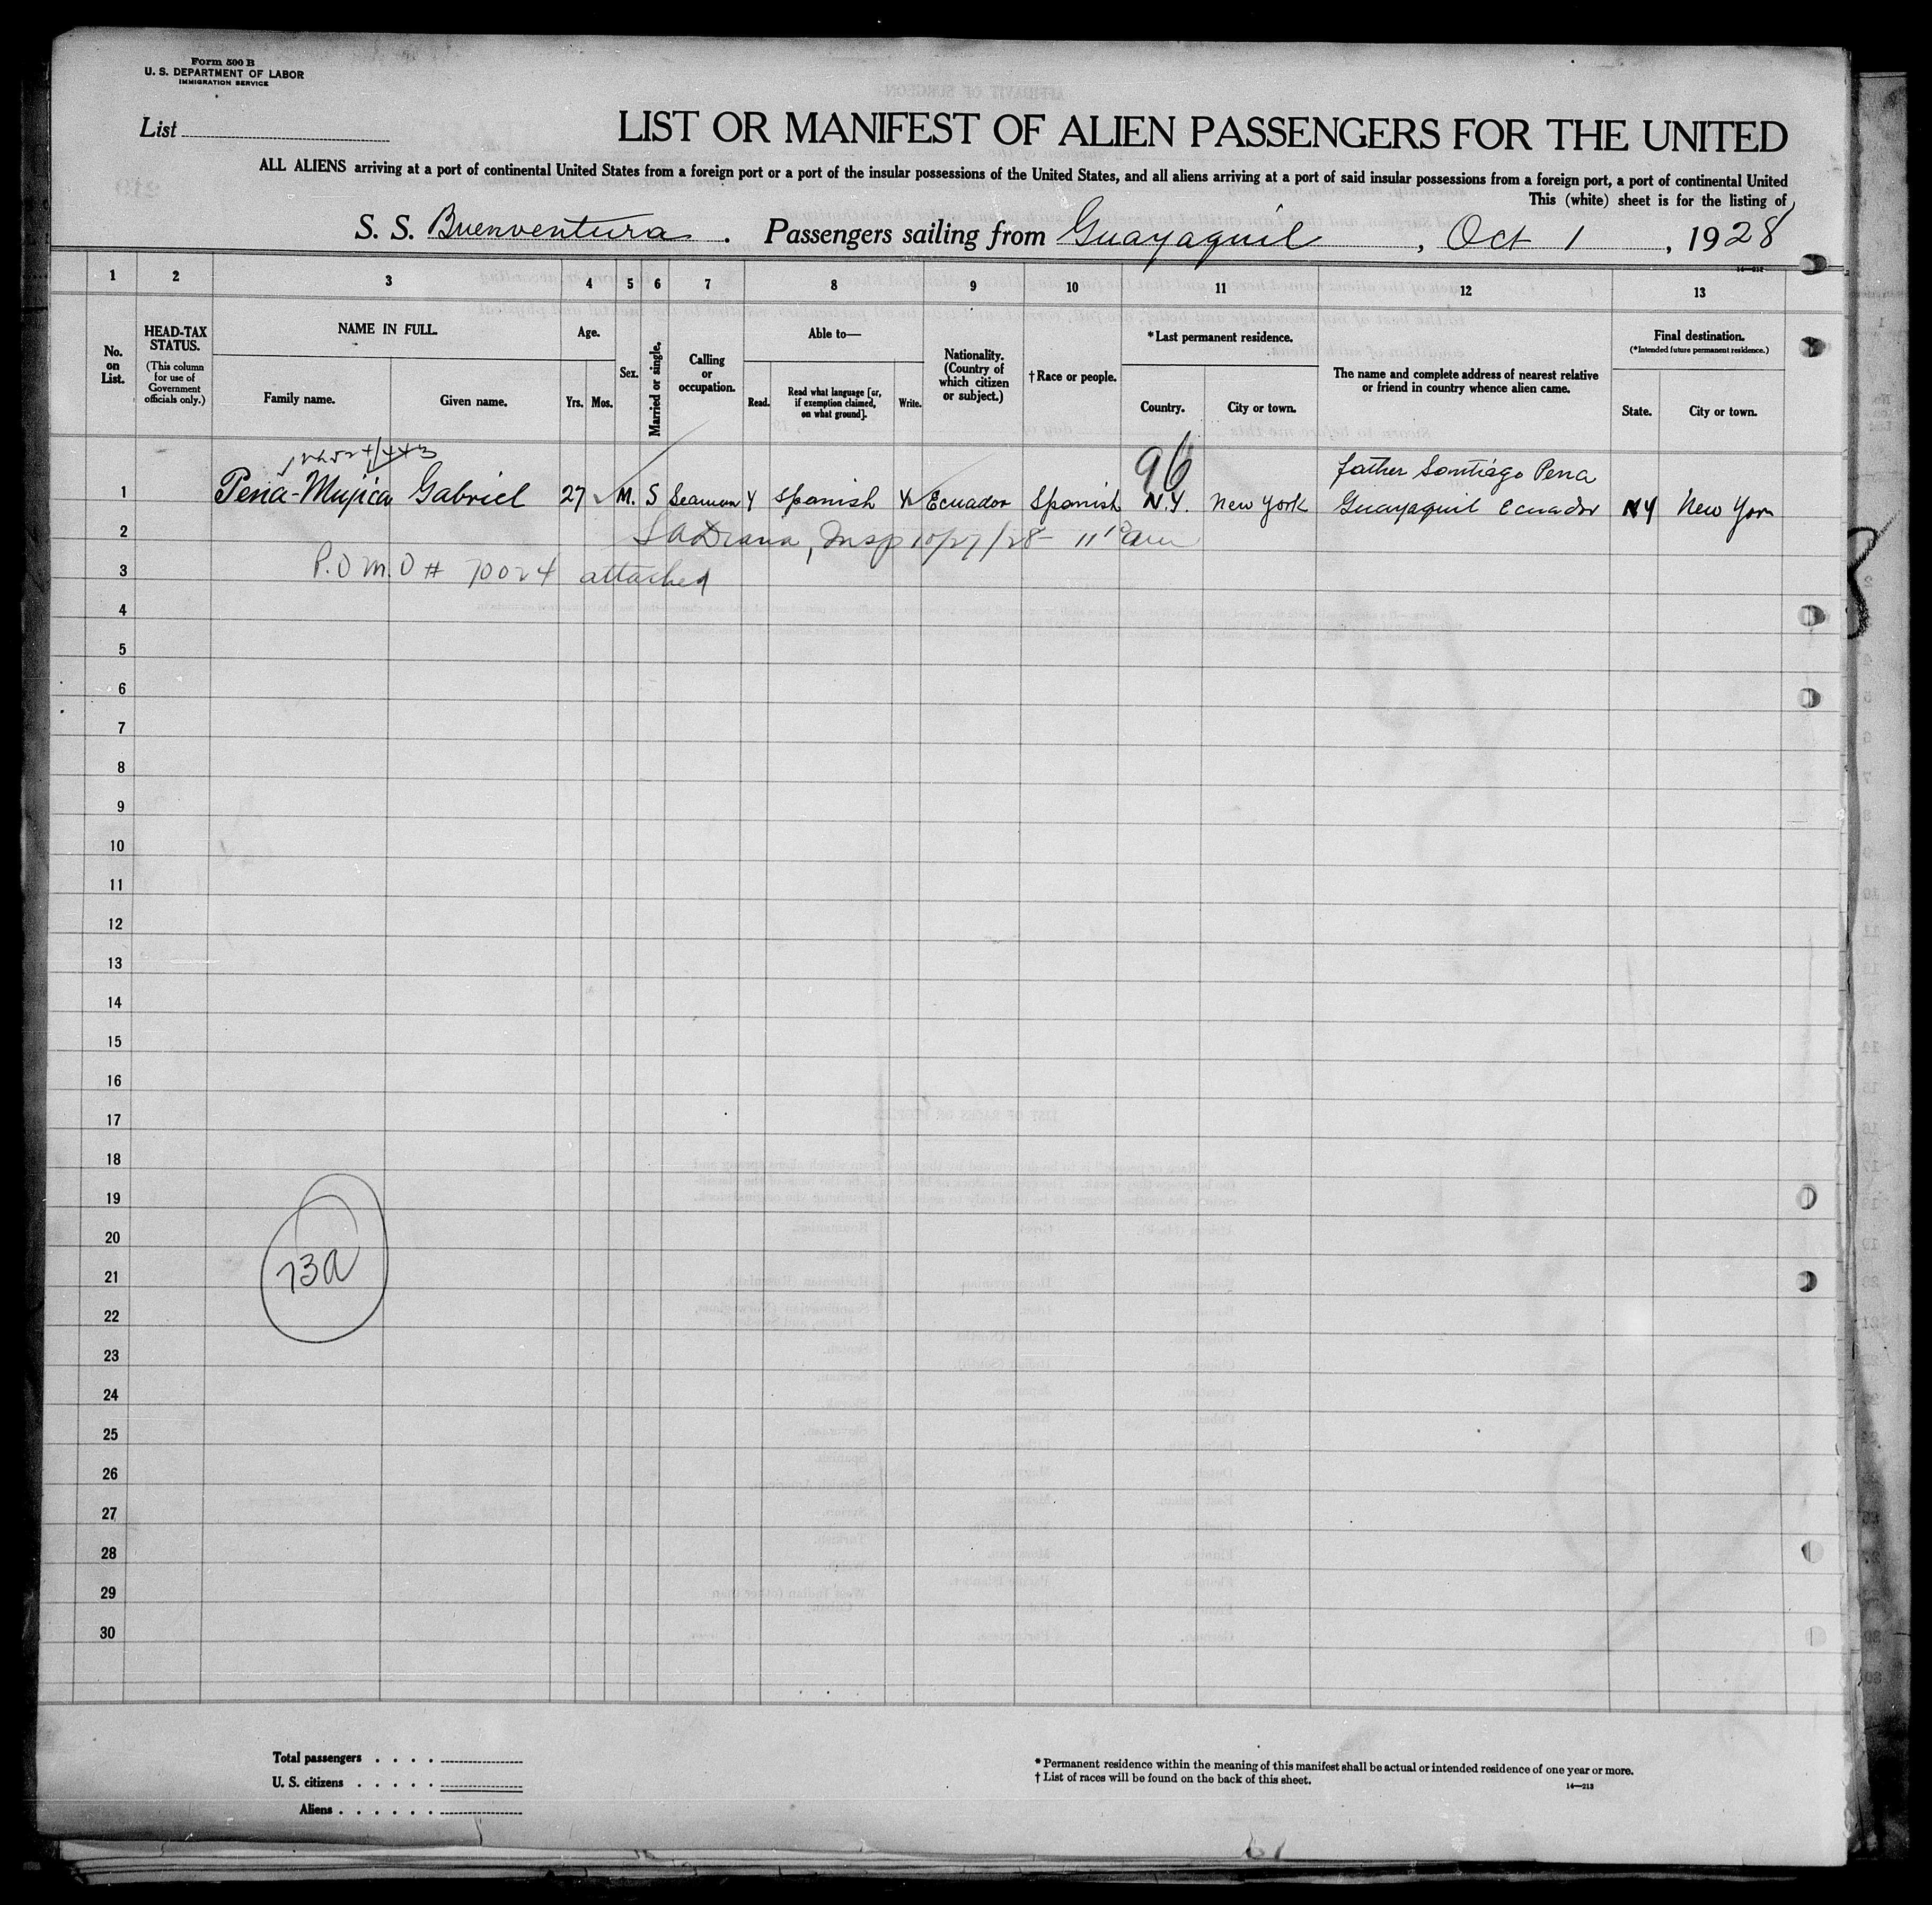 Form 500 B
U. S. DEPARTMENT OF LABOR
IMMIGRATION SERVICE
List
LIST OR MANIFEST OF ALIEN PASSENGERS FOR THE UNITED
ALL ALIENS arriving at a port of continental United States from a foreign port or a port of the insular possessions of the United States, and all aliens arriving at a port of said insular possessions from a foreign port, a port of continental United
This (white) sheet is for the listing of
S. S. Buenventura. Passengers sailing from Guayaquil, Oct 1, 1928
14—212
1 2 3 4 5 6 7 8 9 10 11 12 13
No. on List.
HEAD-TAX STATUS.
(This column for use of Government officials only.)
NAME IN FULL.
Family name. Given name.
Age.
Yrs. Mos.
Sex.
Married or single.
Calling or occupation.
Able to—
Read. Read what language [or, if exemption claimed, on what ground]. Write.
Nationality. (Country of which citizen or subject.)
† Race or people.
*Last permanent residence.
Country. City or town.
The name and complete address of nearest relative or friend in country whence alien came.
Final destination.
(*Intended future permanent residence.)
State. City or town.
96
father Santiago Pena
1 Pena-Mujica Gabriel 27 M. S Seaman Y Spanish Y Ecuador Spanish N.Y. New York Guayaquil Ecuador NY New York
2 Insp 10/27/28 11 am
3 P.O M.O # 70024 attached
4
5
6
7
8
9
10
11
12
13
14
15
16
17
18
19
20
21
22
23
24
25
26
27
28
29
30
73a
Total passengers . . . .
U. S. citizens . . . . .
Aliens . . . . . .
* Permanent residence within the meaning of this manifest shall be actual or intended residence of one year or more.
† List of races will be found on the back of this sheet.
14—213